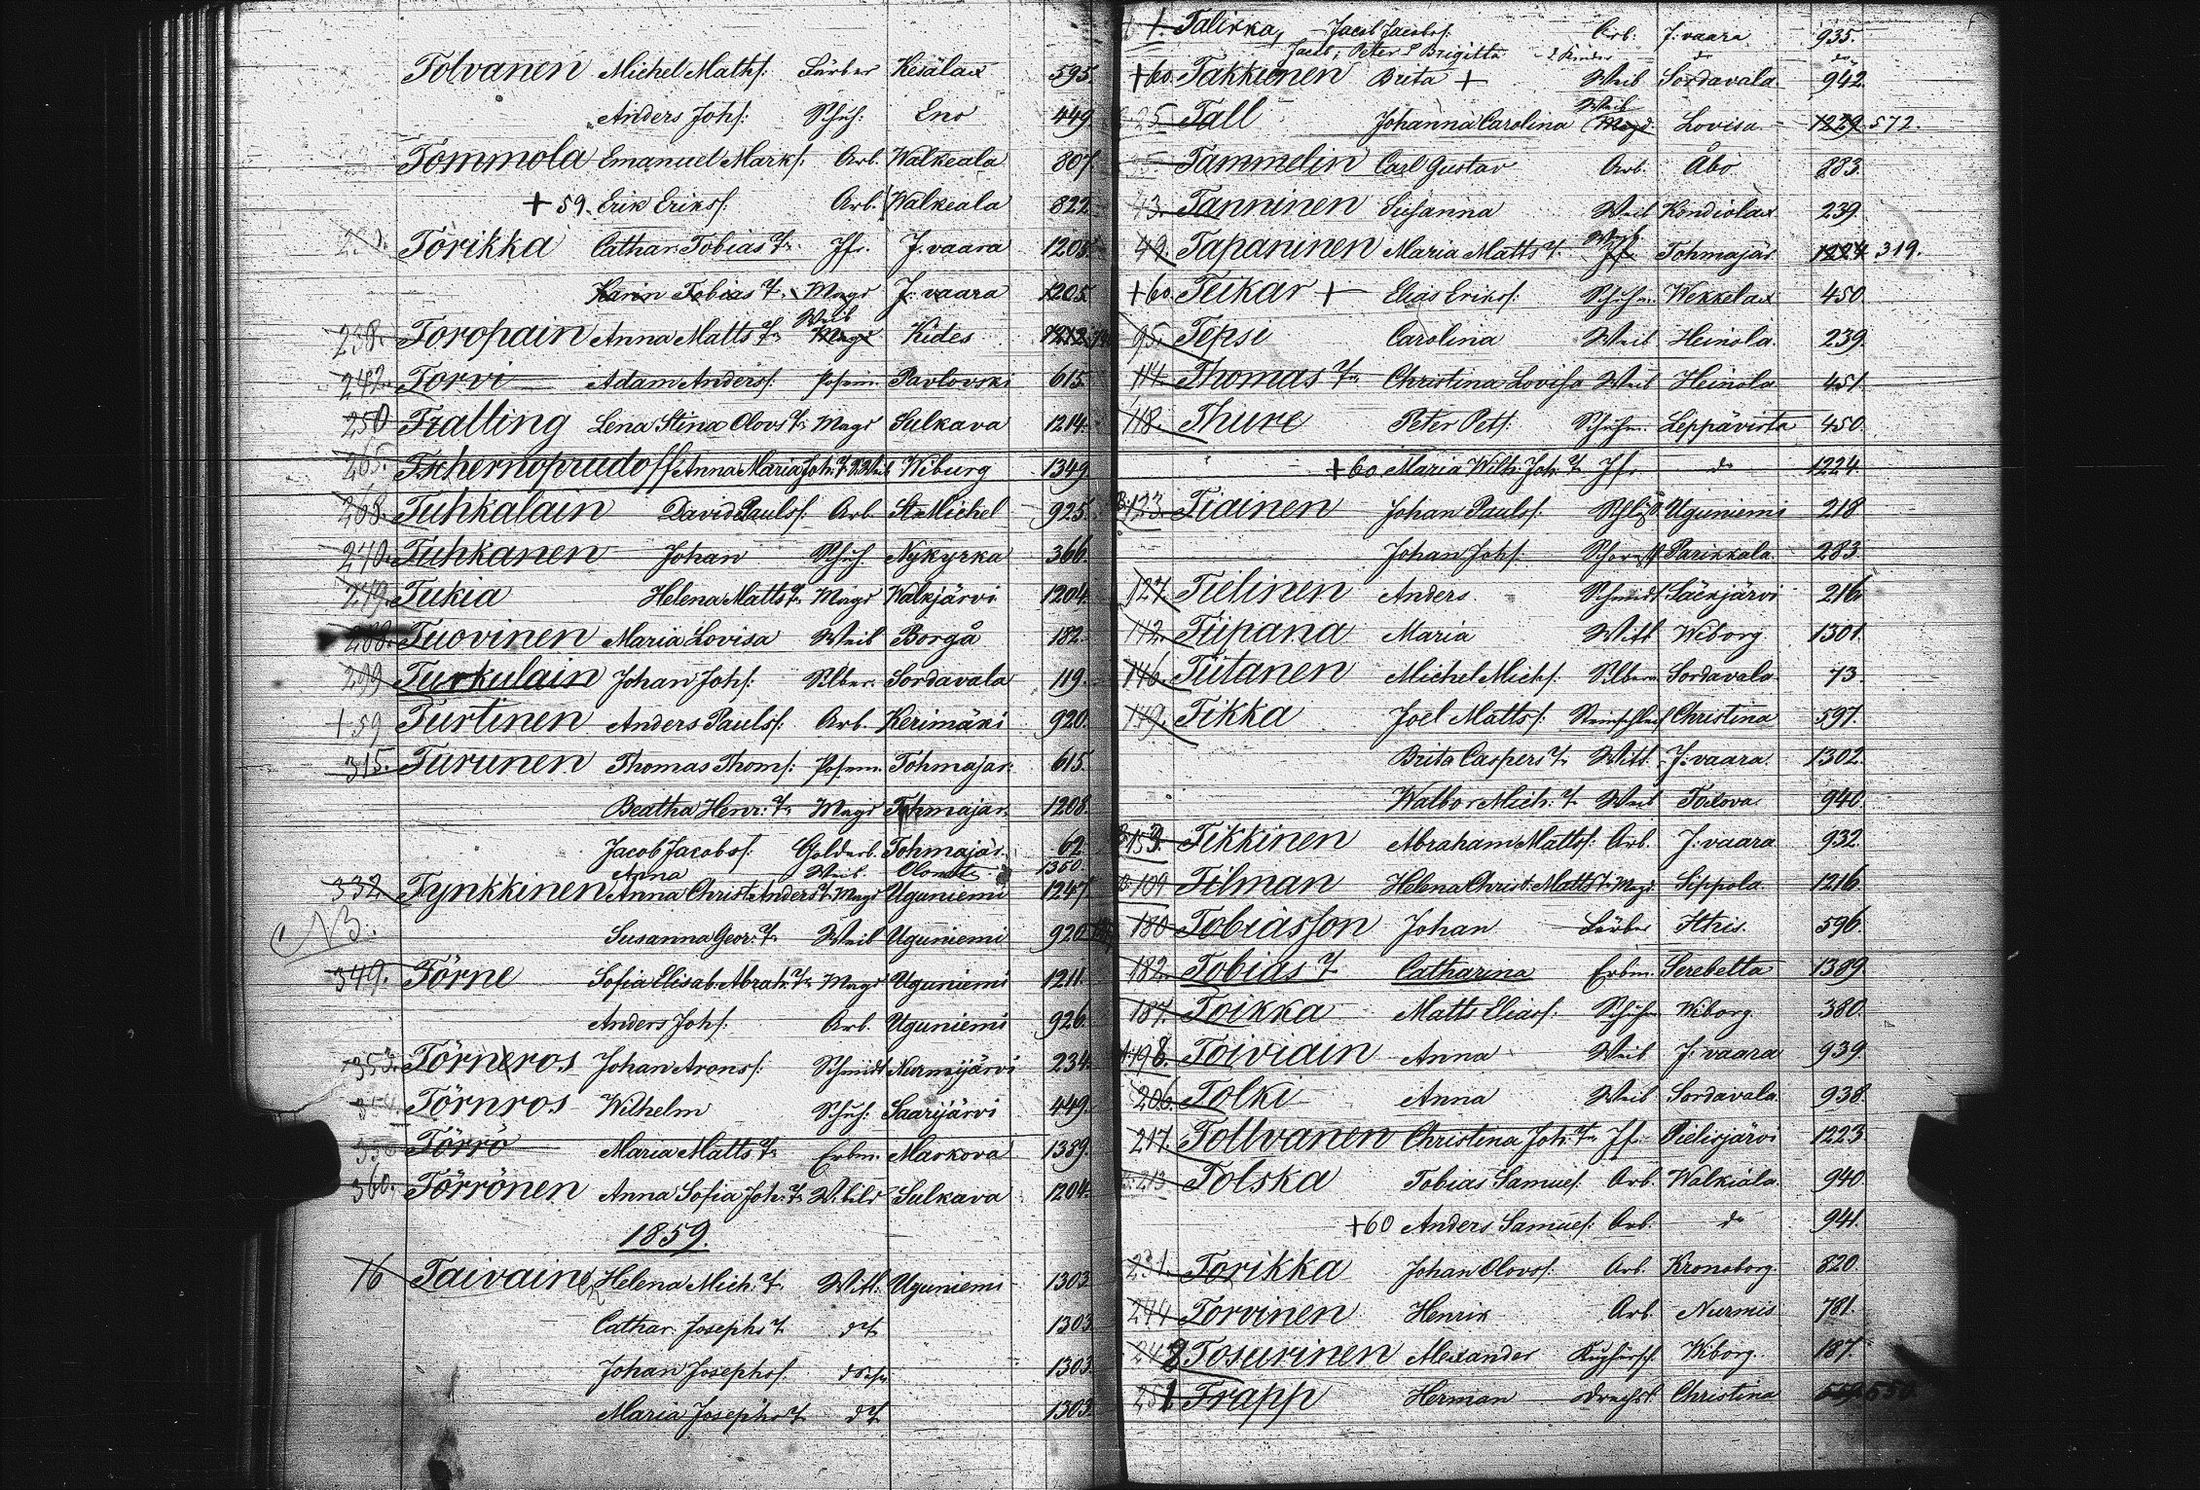 Tolvanen Michel Maths: Färber Kesälax 595.
Anders Johs: Schuh: Eno 449
Tommola Emanuel Marks: Arb. Walkeala 807.
+59. Erik Erikss: Arb. Walkeala 822
Torikka Cathar: Tobias T. Jfr. J. vaara 1205
Karin Tobias T. Magd J. vaara 1205
Weib
238. Toropain Anna Matts T. Magd Kides 1212
242. Torvi Adam Anderss: Posam. Pavlovski 615.
250 Tralling Lena Stina Olovs T. Magd Sulkava 1214
265. Tschernoprudoff Anna Maria Joh: T. Weib Wiburg 1349
268. Tuhkalain David Paulss: Arb. St. Michel 925.
270. Tuhkanen Johan Schuh. Nykyrka 366.
279. Tukia Helena Matts T. Magd Walkjärvi 1204.
288. Tuovinen Maria Lovisa Weib Borgå 182.
299 Turkulain Johan Johs: Silber. Sordavala 119.
+59 Turtinen Anders Paulss: Arb. Kerimäki 920.
315. Turunen Thomas Thoms: Posam. Tohmajar: 615.
Beatha Henr: T. Magd Tohmajar. 1208.
Jacob Jacobss: Goldarb. Tohmajär. 62
Anna Weib. 1350.
332 Tynkkinen Anna Christ: Anders T. Magd Uguniemi 1247
NB. Susanna Geor: T. Weib Uguniemi 920
349. Törne Sofia Elisab: Abrah: T. Magd Uguniemi 1211.
Anders Johs: Arb. Uguniemi 926.
353. Törneros Johan Arons: Schmidt Nurmijärvi 234.
354. Törnros Wilhelm Schuh: Saarijärvi 449.
Törrö Maria Matts T. Erbm. Markova 1389.
360. Törrönen Anna Sofia Joh: T. Sulkava 1204.
1859.
16 Taivain Helena Mich: T. Witt: Uguniemi 1303
Cathar: Josephs T. 1303
Johan Josephss. 1303
Maria Josephs T. 1303.
1. Talikka, Jacob Jacobss: Arb: J. vaara 935.
Jacob, Peter & Brigitta 2 Kinder do
+60. Takkunen Brita + Weib Sordavala 942.
Weib
25. Tall Johanna Carolina Magd. Lovisa 1229 572.
35. Tammelin Carl Gustav Arb. Åbo 883.
43. Tanninen Susanna Weib Kondiolax 239.
Weib
49. Tapaninen Maria Matts T. Jfr. Tohmajär. 1224 319.
+60 Teikar + Elias Erikss: Schuhm. Wekkelax 450.
95. Tepsi Carolina Weib Heinola 239.
114. Thomas T. Christina Lovisa Weib Heinola 451.
118. Thure Peter Pets: Schuhm. Leppävirta 450.
+60 Maria Wilh: Joh: T. Jfr. do 1224.
123. Tiainen Johan Paulss: Uguniemi 218
Johan Johs: Parikkala 283.
127. Tielinen Anders Schmidt Säckjärvi 216
142. Tiipana Maria Witt Wiborg 1301.
146. Tiitanen Michel Michs: Silberm. Sordavala 73.
149. Tikka Joel Mattss: Steinschleif Christina 597.
Brita Caspers T. Witt. J. vaara. 1302.
Walbor Mich: T. Weib Toxova 940.
153. Tikkinen Abraham Mattss: Arb. J. vaara 932.
Tilman Helena Christ: Matts T. Magd Sippola 1216.
180 Tobiasson Johan Färber Ithis. 596.
182. Tobias T. Catharina Erbm. Serebetta 1389.
187. Toikka Matts Eliass: Schuhm Wiborg. 380.
198. Toiviain Anna Weib J. vaara 939.
206. Tolki Anna Weib Sordavala 938.
217. Tollvanen Christina Joh: T. Jfr. Pielisjärvi 1223
213. Tolska Tobias Samuels. Arb. Walkiala 940.
+60 Anders Samuels: Arb. do 941.
231. Torikka Johan Olovss: Arb. Kronoborg 820.
244 Torvinen Henrik Arb. Nurmis 781.
248 Tosurinen Alexander Kupfersch. Wiborg. 187.
251 Trapp Herman Drechsl. Christina 550